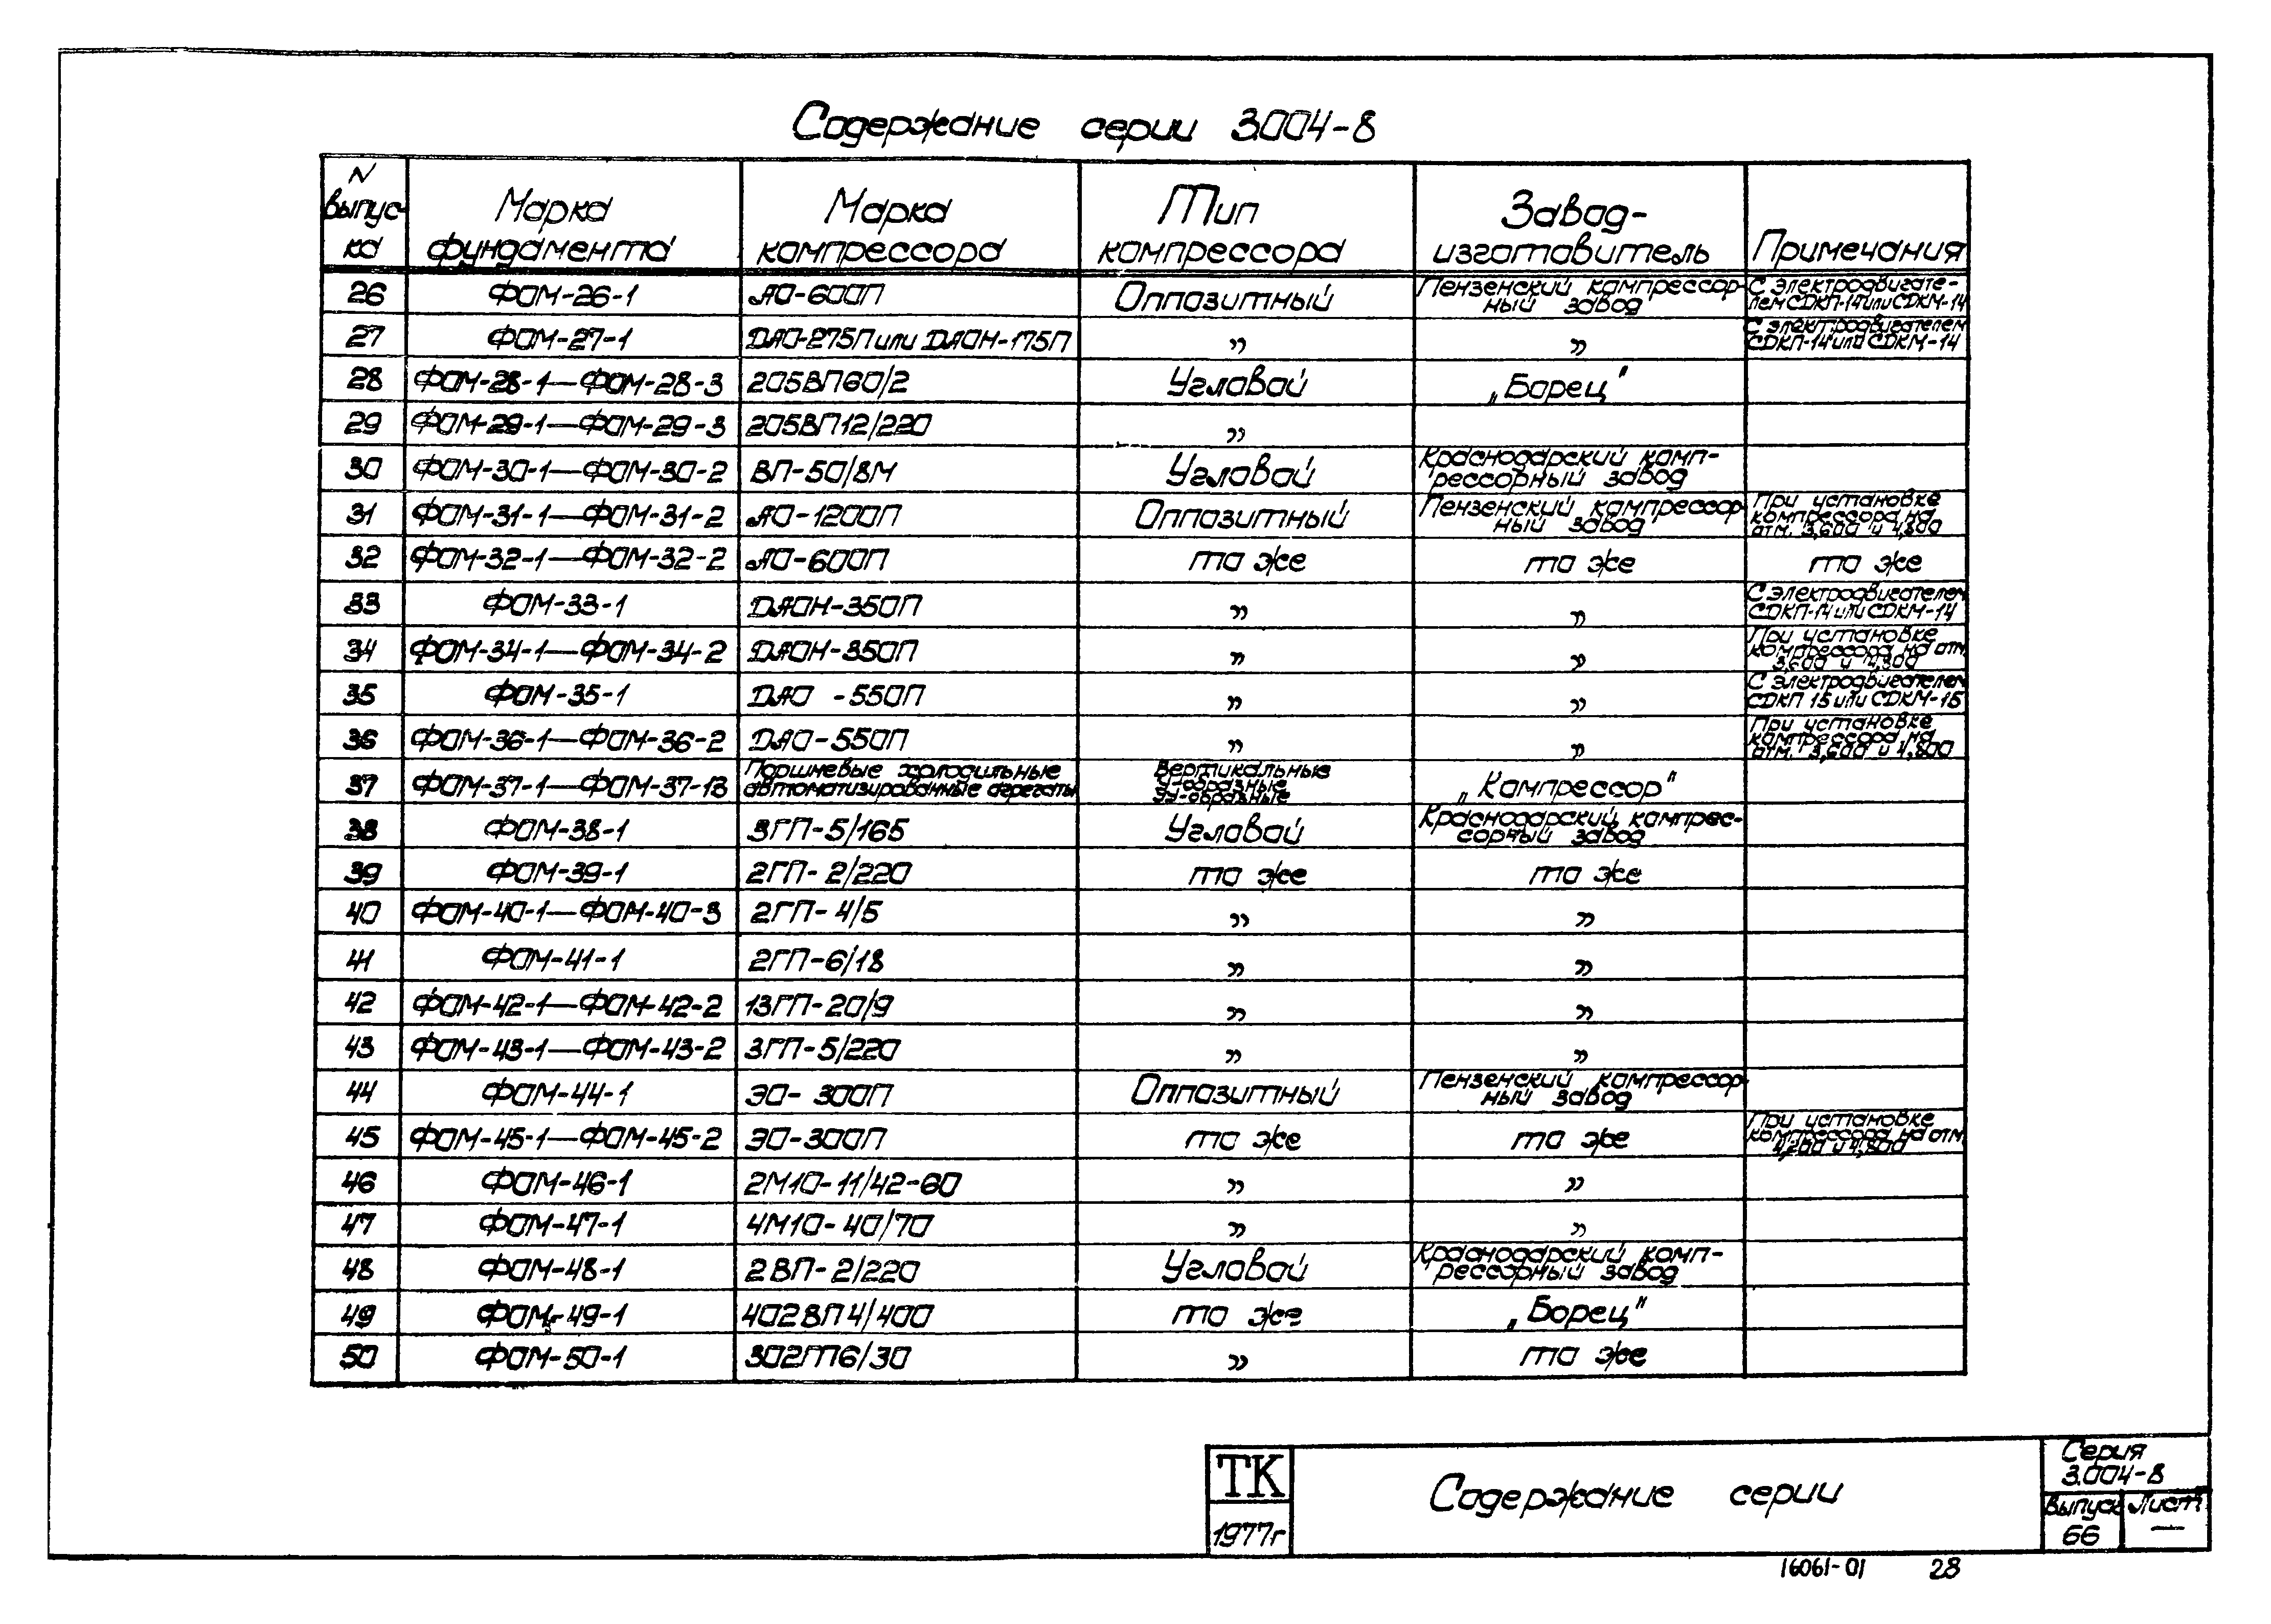 Содержание серии 3.004-8
N выпус-ка | Марка фундамента | Марка компрессора | Тип компрессора | Завод-изготовитель | Примечания
26 | ФОМ-26-1 | АО-600П | Оппозитный | Пензенский компрессор-ный завод | С электродвигате-лем СДКП-14 или СДКМ-14
27 | ФОМ-27-1 | ДАО-275П или ДАОН-175П | „ | „ | С электродвигателем СДКП-14 или СДКМ-14
28 | ФОМ-28-1—ФОМ-28-3 | 205ВП60/2 | Угловой | „Борец"
29 | ФОМ-29-1—ФОМ-29-3 | 205ВП12/220 | „
30 | ФОМ-30-1—ФОМ-30-2 | ВП-50/8М | Угловой | Краснодарский комп-рессорный завод
31 | ФОМ-31-1—ФОМ-31-2 | АО-1200П | Оппозитный | Пензенский компрессор-ный завод | При установке компрессора на отм. 3,600 и 4,800
32 | ФОМ-32-1—ФОМ-32-2 | АО-600П | то же | то же | то же
33 | ФОМ-33-1 | ДАОН-350П | „ | „ | С электродвигателем СДКП-14 или СДКМ-14
34 | ФОМ-34-1—ФОМ-34-2 | ДАОН-350П | „ | „ | При установке компрессора на отм. 3,600 и 4,800
35 | ФОМ-35-1 | ДАО -550П | „ | „ | С электродвигателем СДКП 15 или СДКМ-15
36 | ФОМ-36-1—ФОМ-36-2 | ДАО-550П | „ | „ | При установке компрессора на отм. 3,600 и 4,800
37 | ФОМ-37-1—ФОМ-37-13 | Поршневые холодильные автоматизированные агрегаты | Вертикальные У-образные УУ-образные | „Компрессор"
38 | ФОМ-38-1 | 3ГП-5/165 | Угловой | Краснодарский компрес-сорный завод
39 | ФОМ-39-1 | 2ГП-2/220 | то же | то же
40 | ФОМ-40-1—ФОМ-40-3 | 2ГП-4/5 | „ | „
41 | ФОМ-41-1 | 2ГП-6/18 | „ | „
42 | ФОМ-42-1—ФОМ-42-2 | 13ГП-20/9 | „ | „
43 | ФОМ-43-1—ФОМ-43-2 | 3ГП-5/220 | „ | „
44 | ФОМ-44-1 | ЭО-300П | Оппозитный | Пензенский компрессор-ный завод
45 | ФОМ-45-1—ФОМ-45-2 | ЭО-300П | то же | то же | При установке компрессора на отм. 4,200 и 4,800
46 | ФОМ-46-1 | 2М10-11/42-60 | „ | „
47 | ФОМ-47-1 | 4М10-40/70 | „ | „
48 | ФОМ-48-1 | 2ВП-2/220 | Угловой | Краснодарский комп-рессорный завод
49 | ФОМ-49-1 | 402ВП4/400 | то же | „Борец"
50 | ФОМ-50-1 | 302ГП6/30 | „ | то же
ТК
1977г
Содержание серии
Серия
3.004-8
Выпуск Лист
66 —
16061-01 28